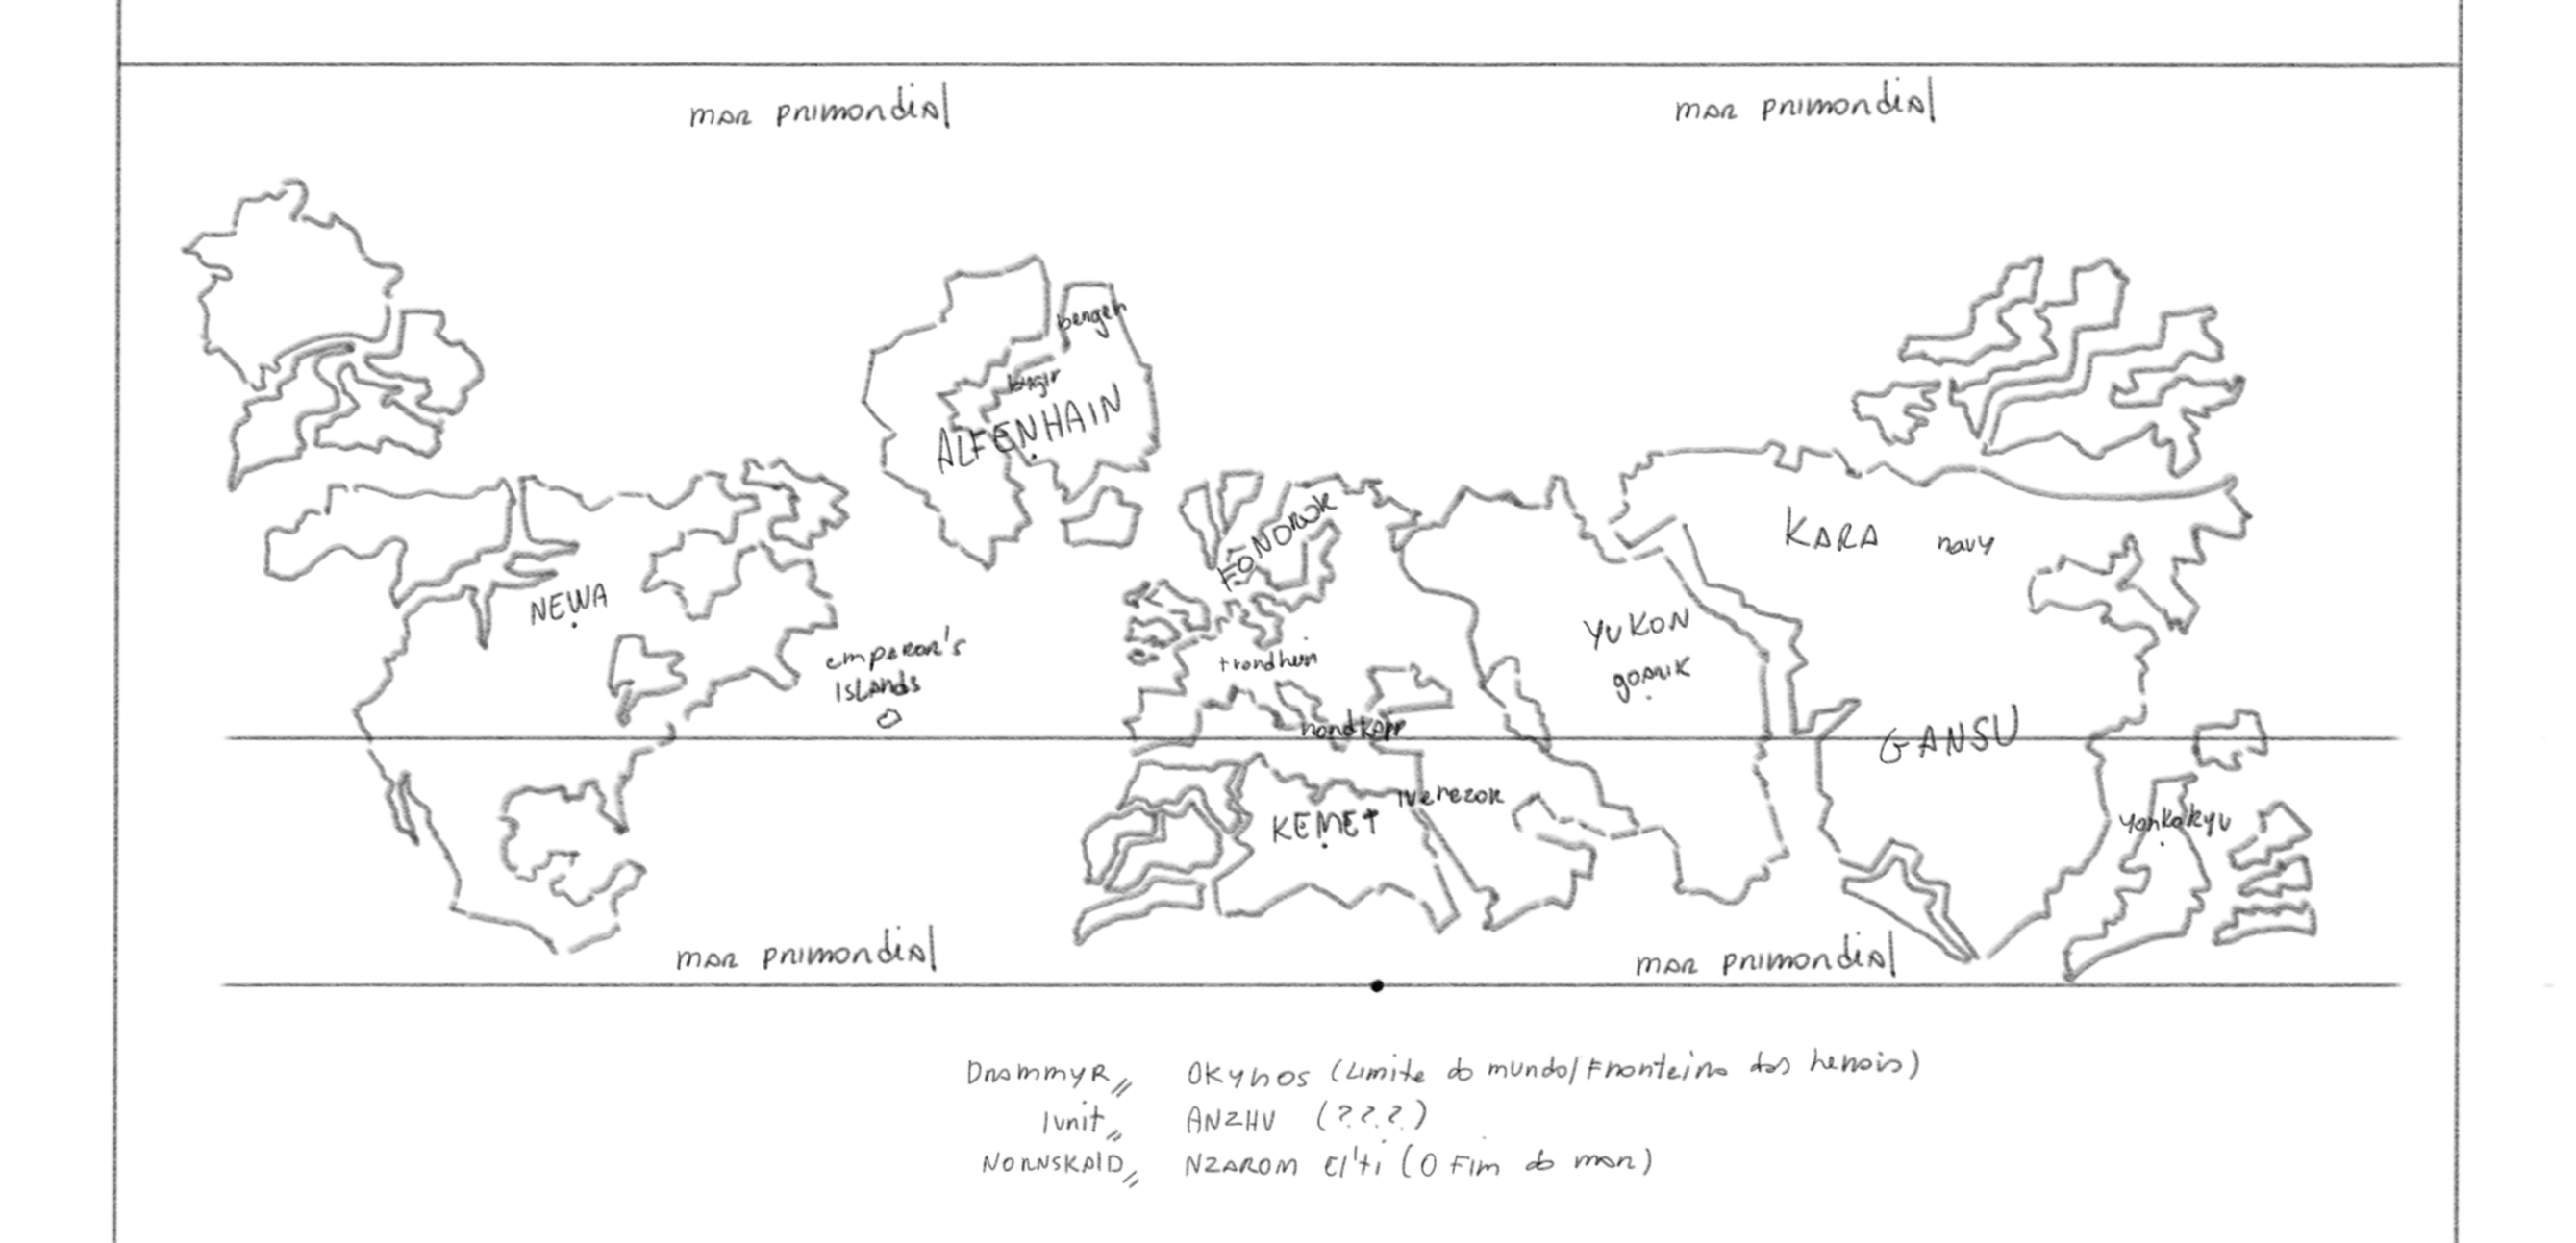 mar primordial
mar primordial
bengen
bygir
ALFENHAIN
FONOROK
KARA
navy
NEWA
YUKON
gornik
emperor's
Islands
trondheim
nordkapp
GANSU
Iverezor
KEMET
yonkokyu
mar primordial
mar primordial
DrammyR,, OKYhOS (Limite do mundo/Fronteira dos herois)
Iunit,, ANZHU (???)
NORNSKAlD,, NZAROM El'ti (O Fim do mar)